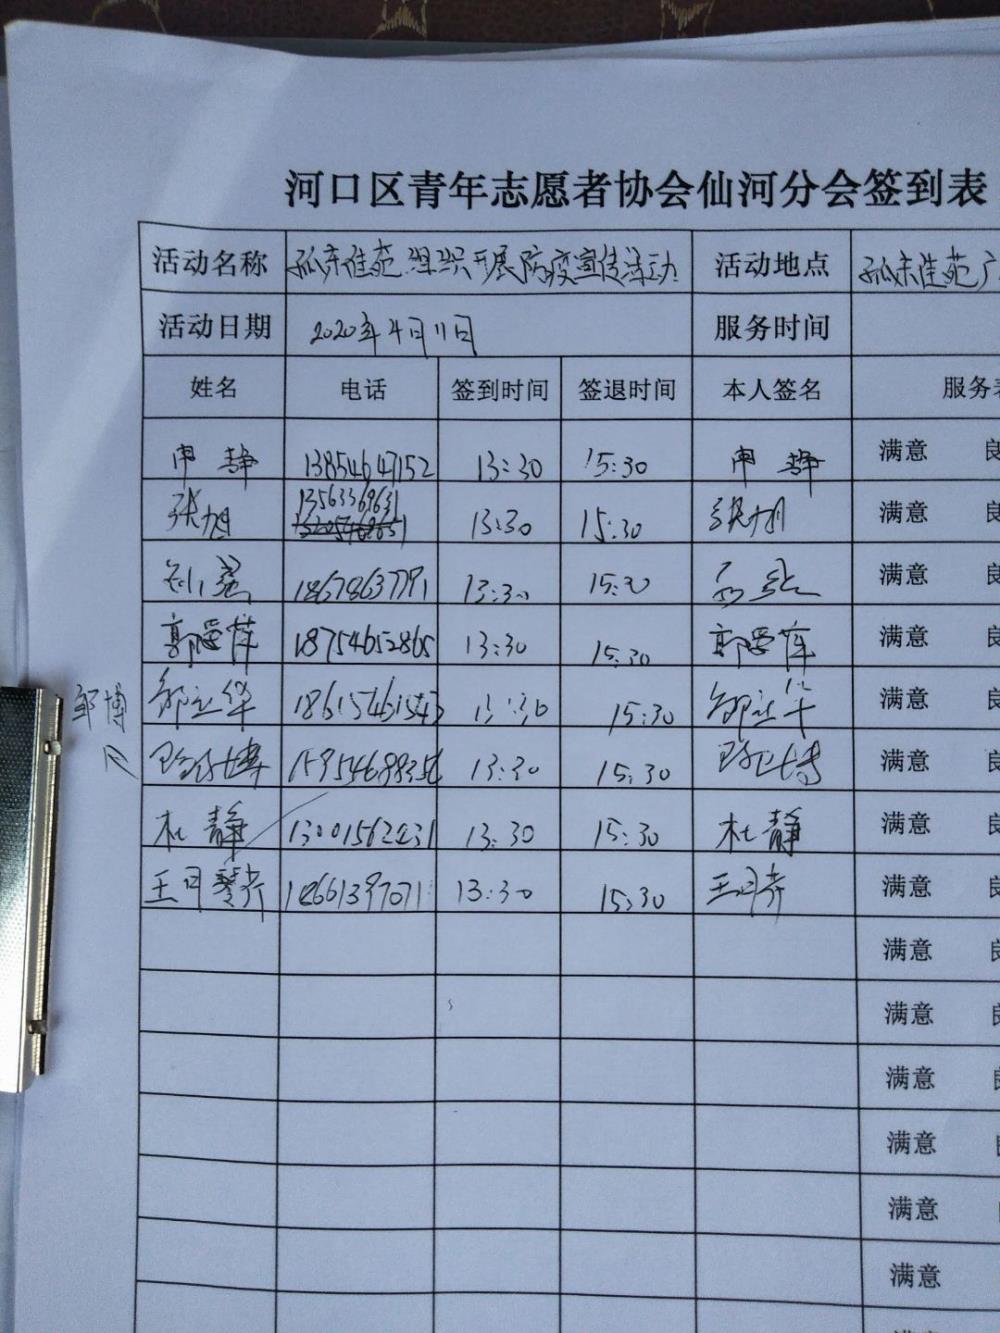 河口区青年志愿者协会仙河分会签到表
活动名称 孤东佳苑组织开展防疫宣传活动 活动地点 孤东佳苑广
活动日期 2020年4月11日 服务时间
姓名 电话 签到时间 签退时间 本人签名 服务表
申静 13854647152 13:30 15:30 申静 满意 良
张旭 13563369631 13:30 15:30 张旭 满意 良
18678637791 13:30 15:30 满意 良
郭爱萍 18754652865 13:30 15:30 郭爱萍 满意 良
邹立华 18615461543 13:30 15:30 邹立华 满意 良
邹博
15954698356 13:30 15:30 满意 良
杜静 13001562431 13:30 15:30 杜静 满意 良
王月 18661397071 13:30 15:30 王月 满意 良
满意 良
满意 良
满意 良
满意 良
满意
满意